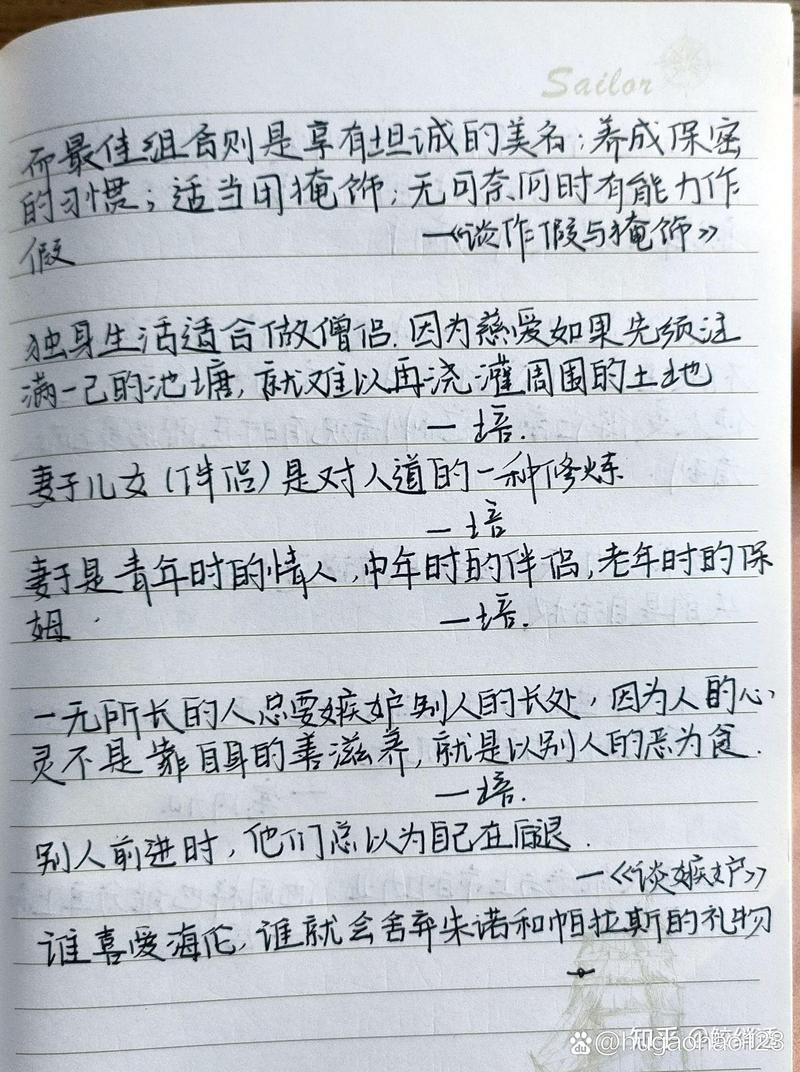 Sailor
而最佳组合则是享有坦诚的美名；养成保密
的习惯；适当用掩饰；无可奈何时有能力作
假
—《谈作假与掩饰》
独身生活适合做僧侣.因为慈爱如果先须注
满一己的池塘,就难以再浇灌周围的土地
—培.
妻子儿女(伴侣)是对人道的一种修炼
—培
妻子是青年时的情人,中年时的伴侣,老年时的保
姆.
—培.
一无所长的人总要嫉妒别人的长处,因为人的心
灵不是靠自身的善滋养,就是以别人的恶为食.
—培.
别人前进时,他们总以为自己在后退.
—《谈嫉妒》
谁喜爱海伦,谁就会舍弃朱诺和帕拉斯的礼物
知乎 @皎绡香
Baidu @hugaohao123